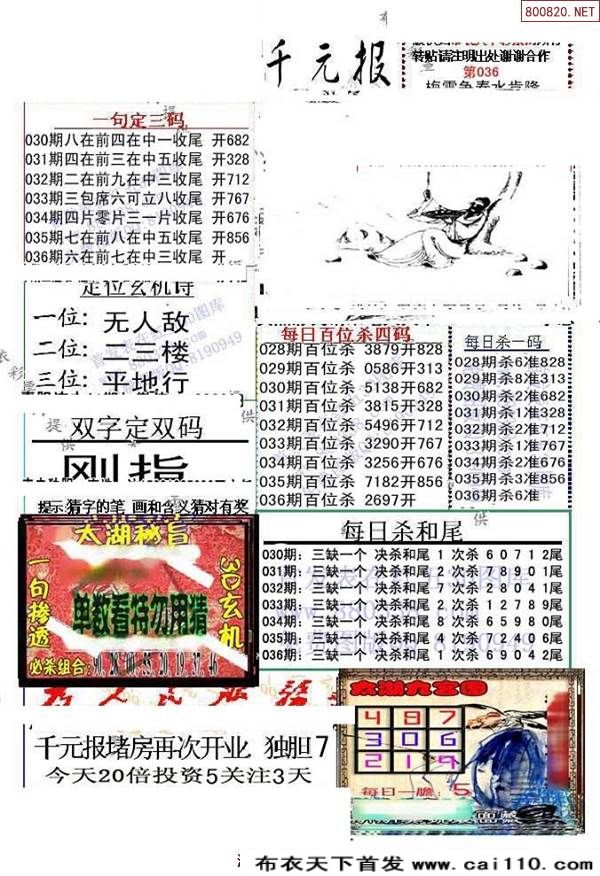 800820.NET
千元报
转贴请注明出处谢谢合作
第036
梅雪争春水肯降
一句定三码
030期八在前四在中一收尾 开682
031期四在前三在中五收尾 开328
032期二在前九在中三收尾 开712
033期三包席六可立八收尾 开767
034期四片零片三一片收尾 开676
035期七在前八在中五收尾 开856
036期六在前七在中三收尾 开
定位玄机诗
一位: 无人敌
二位: 二三楼
三位: 平地行
每日百位杀四码
028期百位杀 3879开828
029期百位杀 0586开313
030期百位杀 5138开682
031期百位杀 3815开328
032期百位杀 5496开712
033期百位杀 3290开767
034期百位杀 3256开676
035期百位杀 7182开856
036期百位杀 2697开
每日杀一码
028期杀6准828
029期杀8准313
030期杀2准682
031期杀1准328
032期杀2准712
033期杀1准767
034期杀1准676
035期杀3准856
036期杀6准
双字定双码
刚指
提示:猜字的笔 画和含义猜对有奖
太湖秘旨
3D玄机
一句掺透
单数看特勿用猜
必杀组合:90.28.00.55.20.19.37.46
每日杀和尾
030期: 三缺一个 决杀和尾 1 次杀 6 0 7 1 2尾
031期: 三缺一个 决杀和尾 2 次杀 1 9 8 0 1尾
032期: 三缺一个 决杀和尾 7 次杀 2 8 0 4 1尾
033期: 三缺一个 决杀和尾 2 次杀 1 2 7 8 9尾
034期: 三缺一个 决杀和尾 8 次杀 6 5 9 8 0尾
035期: 三缺一个 决杀和尾 4 次杀 1 0 5 4 7尾
036期: 三缺一个 决杀和尾 1 次杀 9 1 0 4 2尾
千元报堵房再次开业 独胆7
今天20倍投资5关注3天
太湖九宫图
4 8 7
3 0 6
2 1 9
每日一胆: 5
布衣天下首发 www.cai110.com